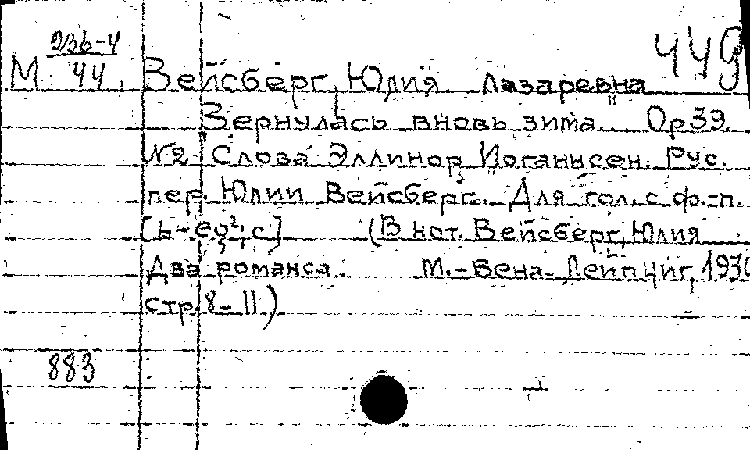 449
236-4
М 44. Вейсберг, Юлия Лазаревна
Вернулась вновь зима. Ор 39
№2 Слова Эллинор Иогансен. Рус.
пер. Юлии Вейсберг. Для гол. с ф.-п.
(В кн. Вейсберг, Юлия
Два романса. М.-Вена-Лейпциг, 1930
стр. 8-11.)
883